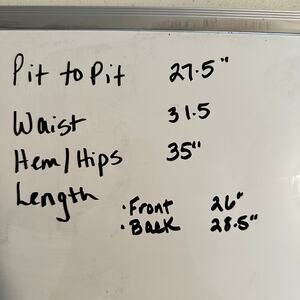 Pit to Pit 27.5"
Waist 31.5
Hem/Hips 35"
Length
·Front 26"
·Back 28.5"